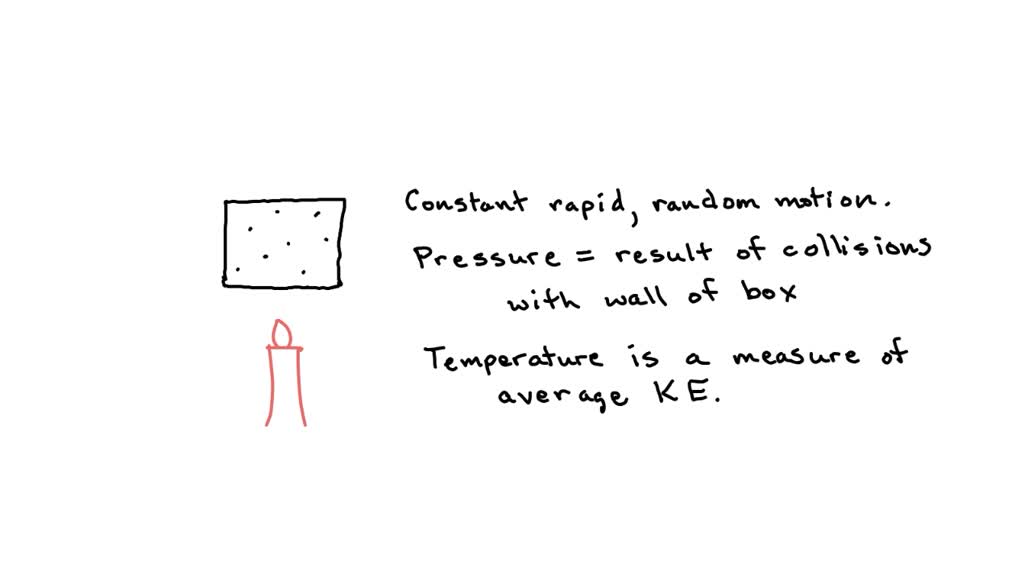 Constant rapid, random motion.
Pressure = result of collisions
with wall of box
Temperature is a measure of
average KE.